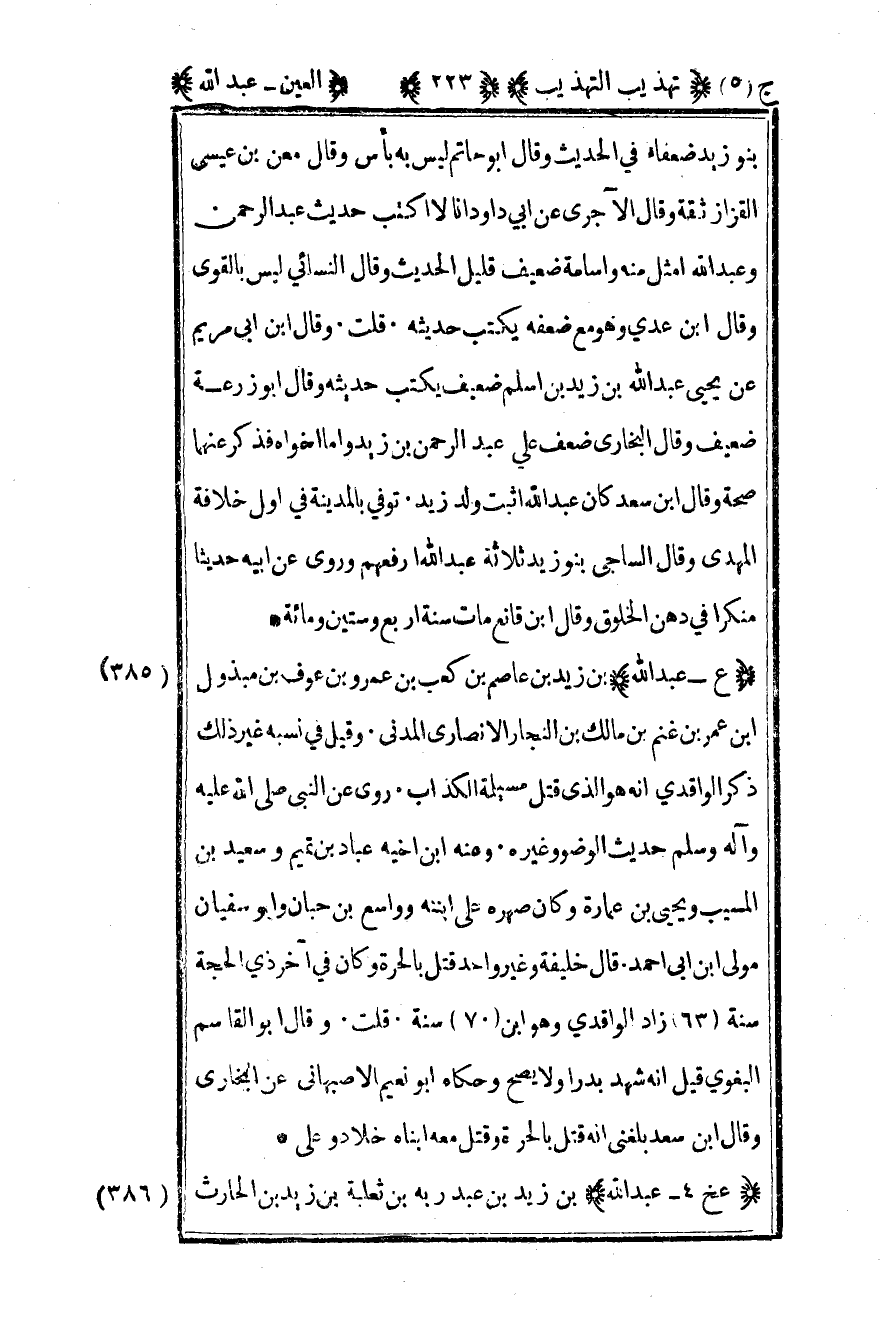 ج (٥) ﴿ تهذيب التهذيب ﴾ ﴿ ٢٢٣ ﴾ ﴿ العين ـ عبد الله ﴾
بنو زيد ضعفاء في الحديث وقال ابو حاتم ليس به بأس وقال معن بن عيسى
القزاز ثقة وقال الآجرى عن ابي داود انا لا اكتب حديث عبد الرحمن
وعبد الله امثل منه واسامة ضعيف قليل الحديث وقال النسائي ليس بالقوى
وقال ابن عدي وهو مع ضعفه يكتب حديثه ٠ قلت ٠ وقال ابن ابى مريم
عن يحيى عبد الله بن زيد بن اسلم ضعيف يكتب حديثه وقال ابو زرعـــة
ضعيف وقال البخارى ضعف علي عبد الرحمن بن زيد واما اخواه فذكر عنهما
صحة وقال ابن سعد كان عبد الله اثبت ولد زيد ٠ توفي بالمدينة في اول خلافة
المهدى وقال الساجى بنو زيد ثلاثة عبد الله ارفعهم وروى عن ابيه حديثا
منكرا في دهن الخلوق وقال ابن قانع مات سنة اربع وستين ومائة *
﴿ ع ـ عبد الله ﴾ بن زيد بن عاصم بن كعب بن عمرو بن عوف بن مبذول (٣٨٥)
ابن عمر بن غنم بن مالك بن النجار الانصارى المدنى ٠ وقيل في نسبه غير ذلك
ذكر الواقدي انه هو الذى قتل مسيلمة الكذاب ٠ روى عن النبى صلى الله عليه
وآله وسلم حديث الوضوو غيره ٠ وعنه ابن اخيه عباد بن تميم و سعيد بن
المسيب ويحيى بن عمارة وكان صهره على ابنته وواسع بن حبان وابو سفيان
مولى ابن ابى احمد ٠ قال خليفة وغير واحد قتل بالحرة وكان في آخر ذي الحجة
سنة (٦٣) زاد الواقدي وهو ابن (٧٠) سنة ٠ قلت ٠ و قال ابو القاسم
البغوي قيل انه شهد بدرا ولا يصح وحكاه ابو نعيم الاصبهانى عن البخارى
وقال ابن سعد بلغنى انه قتل بالحرة وقتل معه ابناه خلاد و على *
﴿ عخ ٤ ـ عبد الله ﴾ بن زيد بن عبد ربه بن ثعلبة بن زيد بن الحارث (٣٨٦)